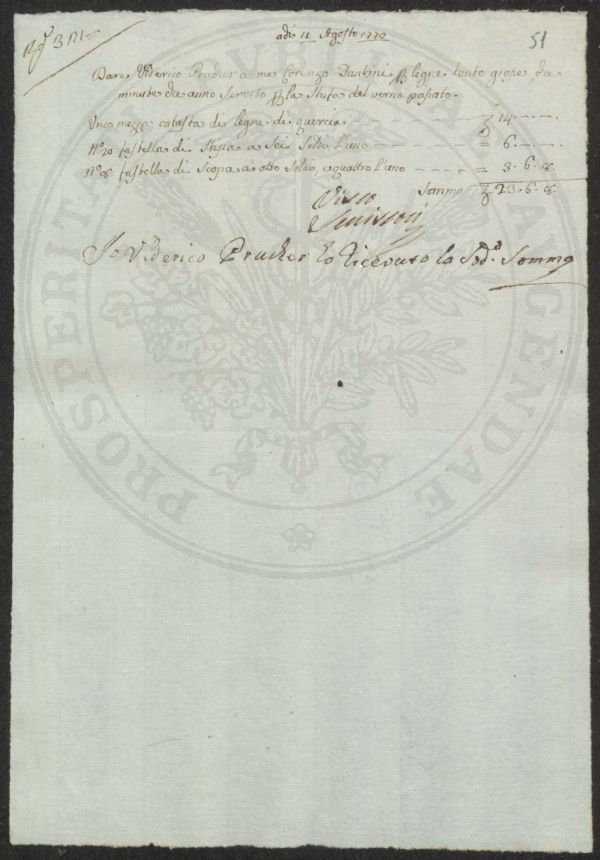 51
adi 11 Agosto 1770
Dare Vlderico Prucker a me Lorenzo Dantini legne tanto grose, da
minute da anno Servito la Stufa del verno pasato.
Una mezza catasta di legne di quercia — 14
N° 20 fastella di Stipa a Sei Soldi L'uno — = 6
N° 08 fastella di Scopa a otto Soldi, e quatro L'uno — = 3.6.8
Somma 23.6.8
Visto
Io Vlderico Prucker ho ricevuto la Sodª. Somma
PROSPERITATI PVBLICAE AVGENDAE